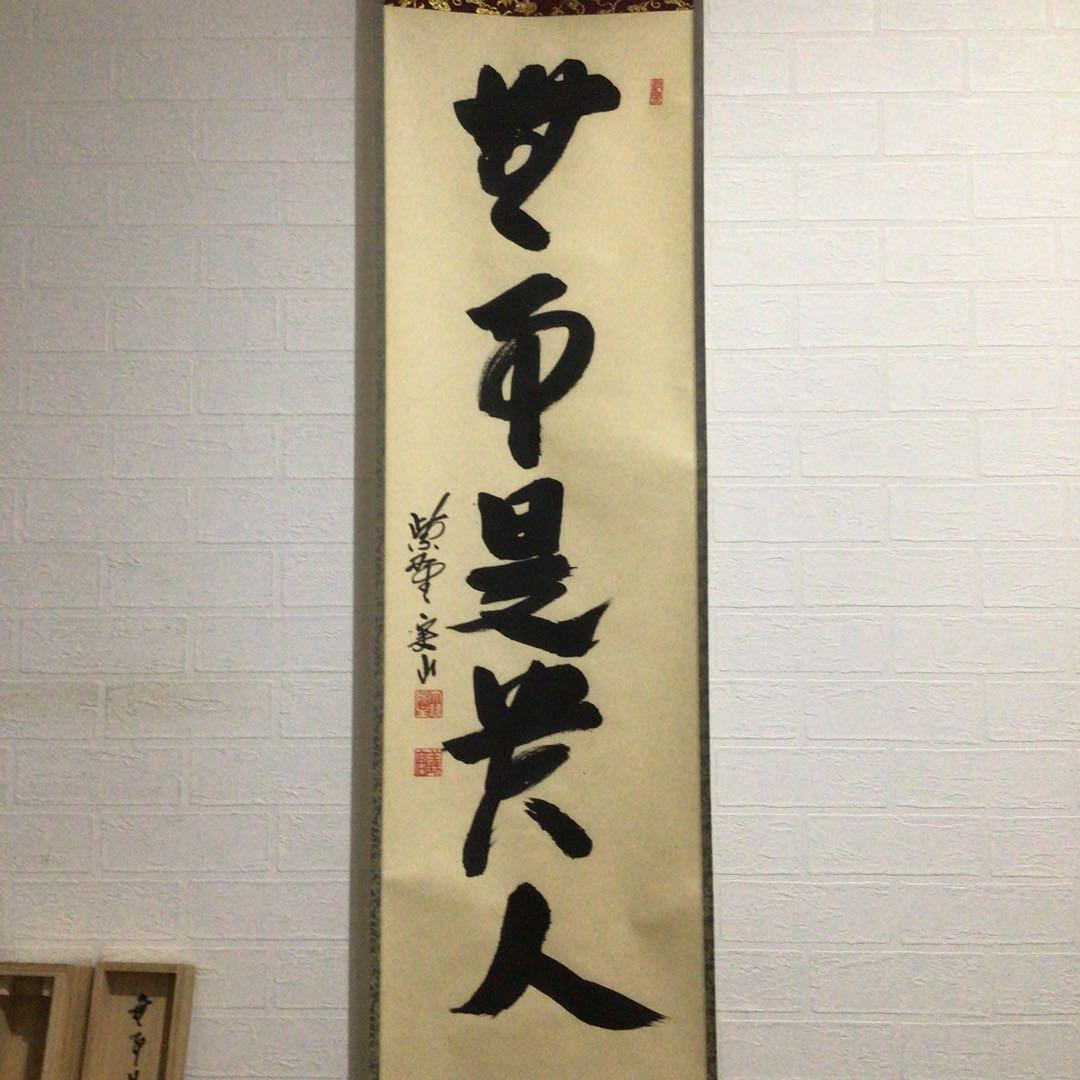 無事是貴人
紫野 寛山
無事